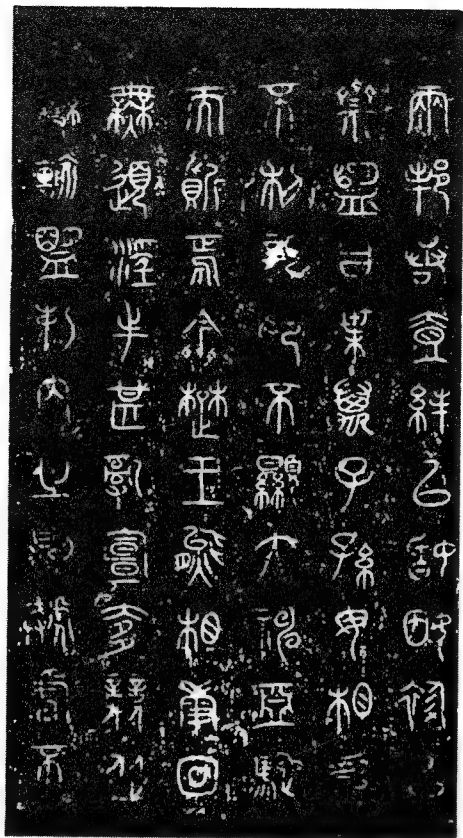 兩邦若壹絆以婚姻袗以
齋盟曰枼萬子孫毋相為
不利親卬不顯大神亞駝
而質焉今楚王熊相康回
無道淫失甚亂宣奓競從
變輸盟制內之則虣虐不